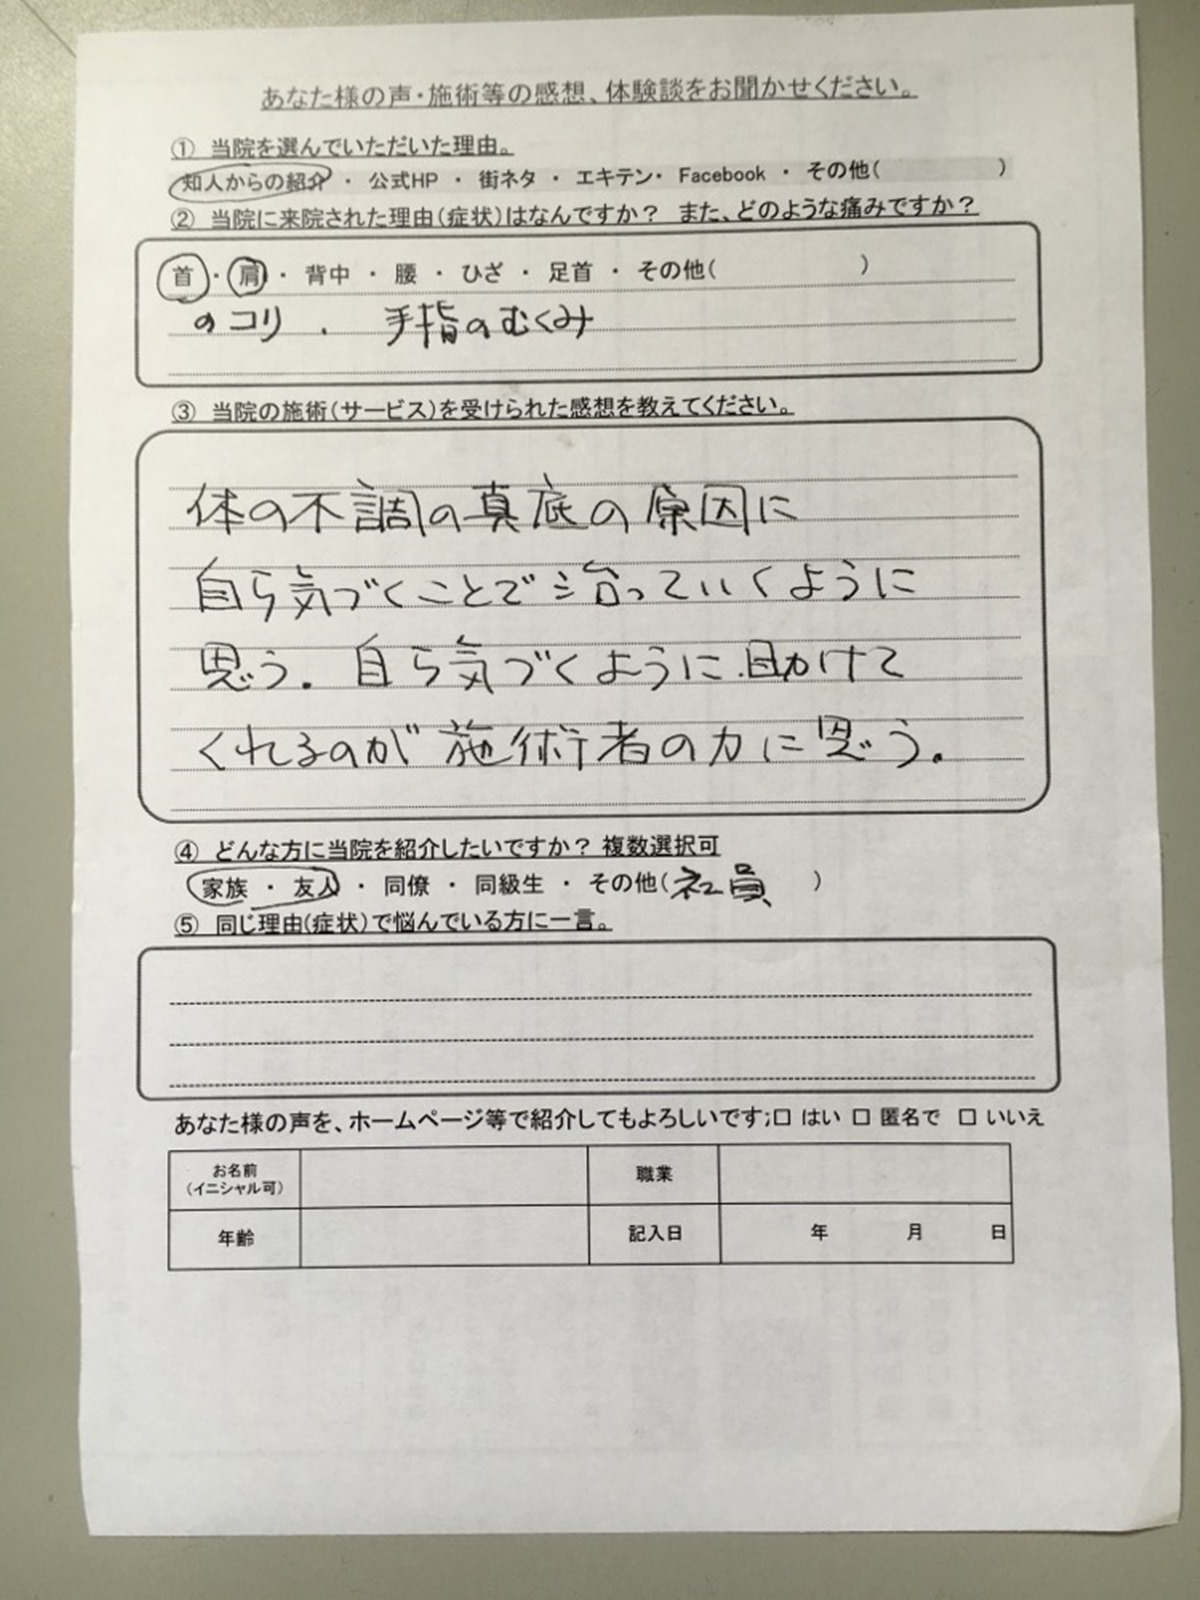 あなた様の声・施術等の感想、体験談をお聞かせください。
① 当院を選んでいただいた理由。
知人からの紹介 ・ 公式HP ・ 街ネタ ・ エキテン・ Facebook ・ その他( )
② 当院に来院された理由(症状)はなんですか? また、どのような痛みですか?
首 ・ 肩 ・ 背中 ・ 腰 ・ ひざ ・ 足首 ・ その他( )
のコリ . 手指のむくみ
③ 当院の施術(サービス)を受けられた感想を教えてください。
体の不調の真底の原因に
自ら気づくことで治っていくように
思う。自ら気づくように助けて
くれるのが施術者の力に思う。
④ どんな方に当院を紹介したいですか? 複数選択可
家族 ・ 友人 ・ 同僚 ・ 同級生 ・ その他(社員 )
⑤ 同じ理由(症状)で悩んでいる方に一言。
あなた様の声を、ホームページ等で紹介してもよろしいです;□ はい □ 匿名で □ いいえ
お名前 職業
(イニシャル可)
年齢 記入日 年 月 日